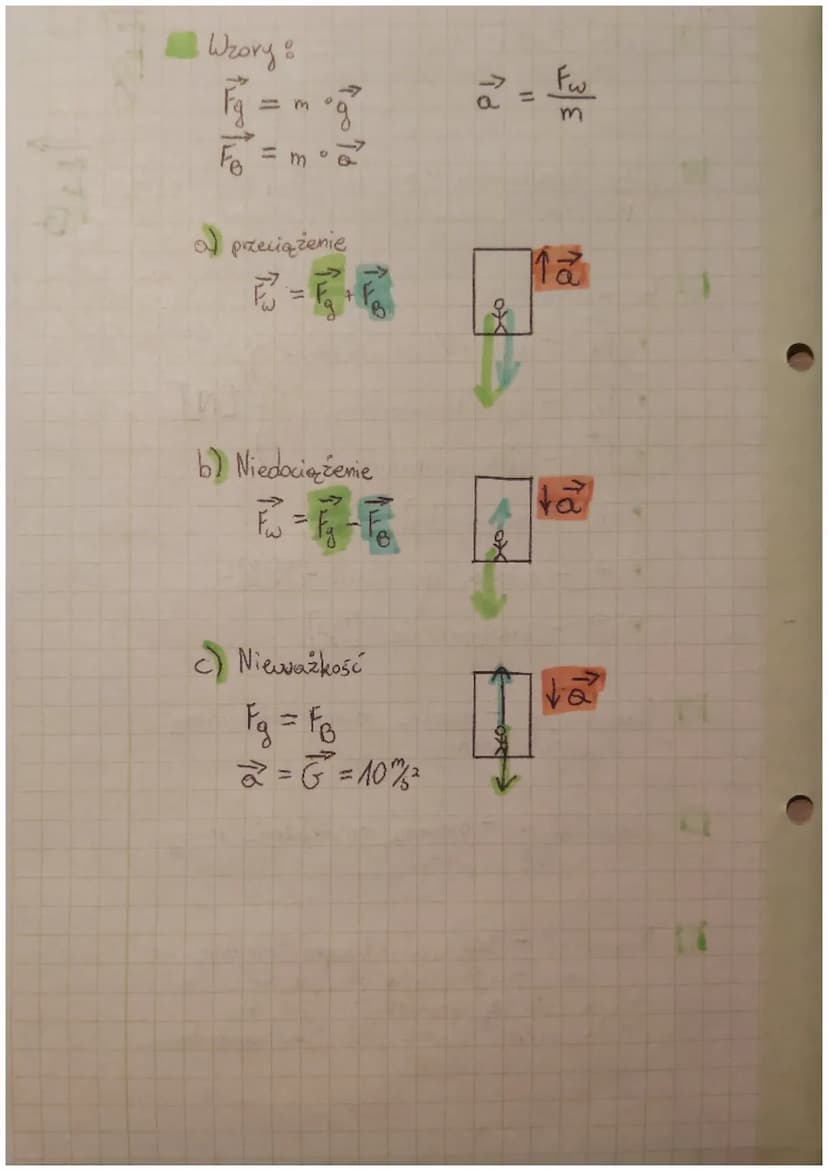 Wzory:
F⃗g = m · g⃗
a⃗ = Fw/m
F⃗B = m · a⃗
a) przeciążenie
F⃗w = F⃗g + F⃗B
↑a⃗
b) Niedociążenie
F⃗w = F⃗g - F⃗B
↓a⃗
c) Nieważkość
Fg = FB
↓a⃗
a⃗ = G⃗ = 10 m/s²